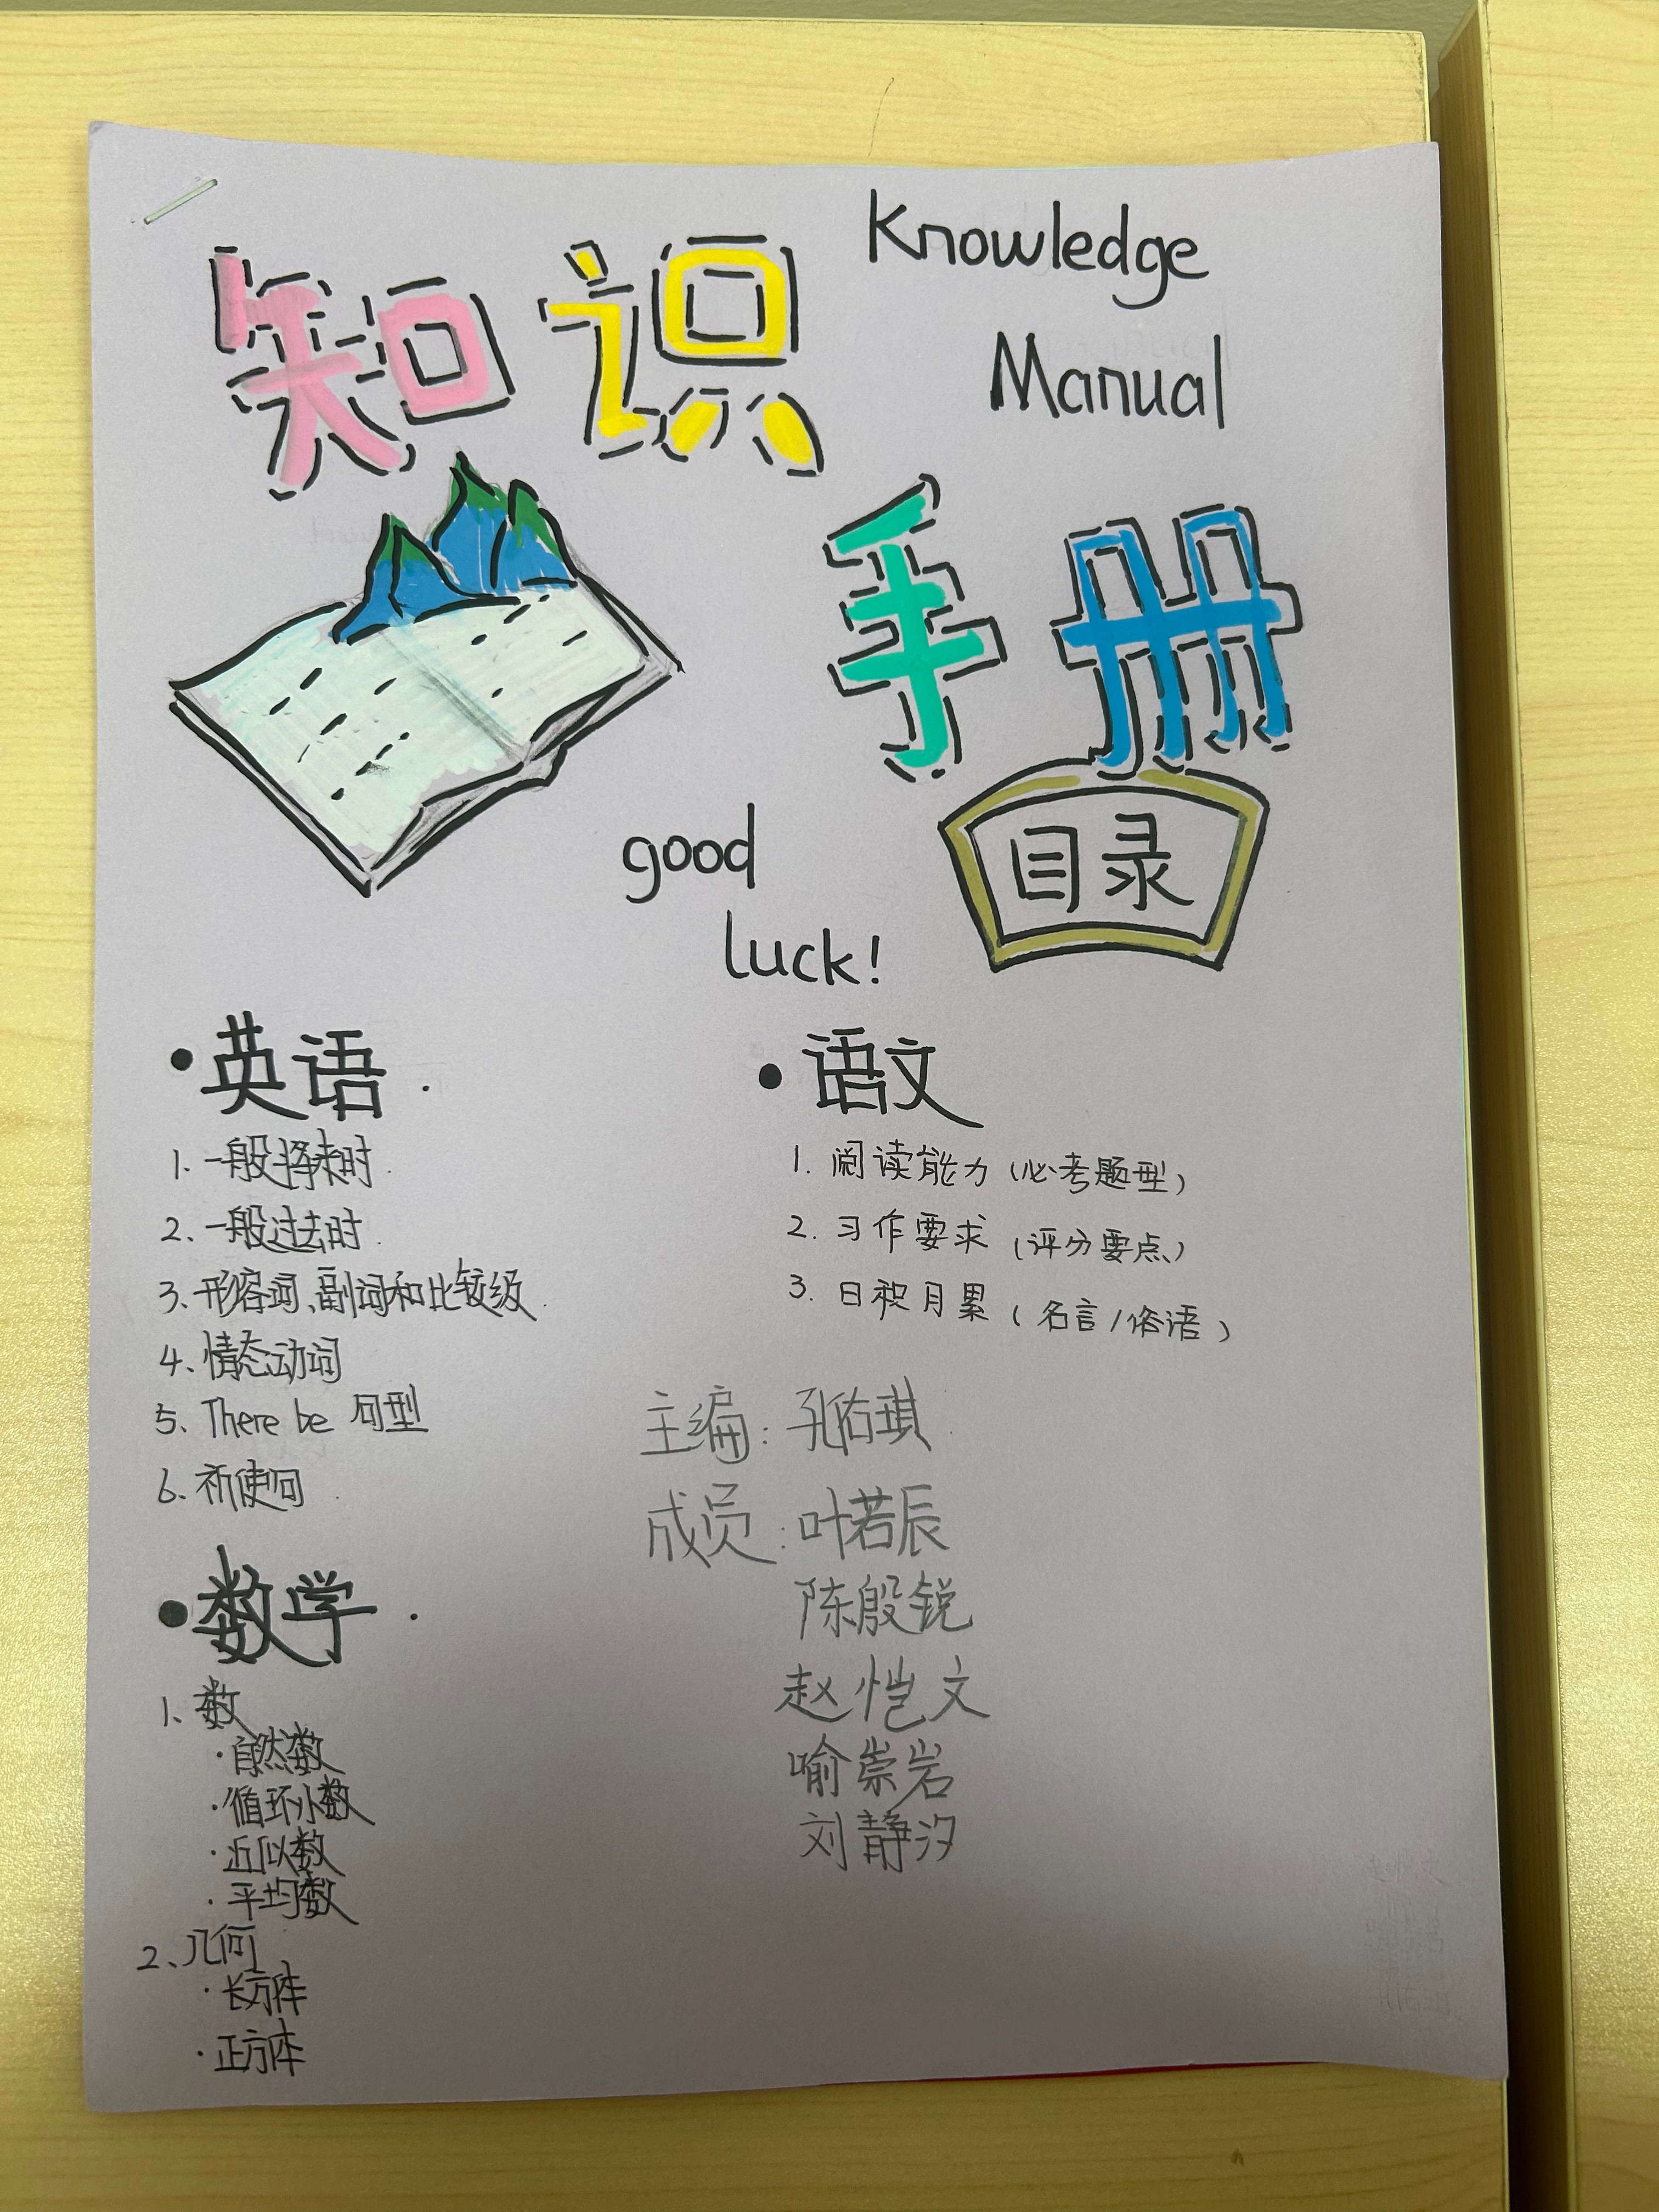 知识
Knowledge
Manual
手册
good
luck!
目录
英语
1. 一般将来时
2、一般过去时
3、形容词、副词和比较级
4、情态动词
5、There be 句型
6、祈使句
数学
1、数
·自然数
·循环小数
·近似数
·平均数
2、几何
·长方体
·正方体
语文
1. 阅读能力（必考题型）
2. 习作要求（评分要点）
3. 日积月累（名言/俗语）
主编：孔佑琪
成员：叶若辰
陈殷锐
赵恺文
喻崇岩
刘静汐